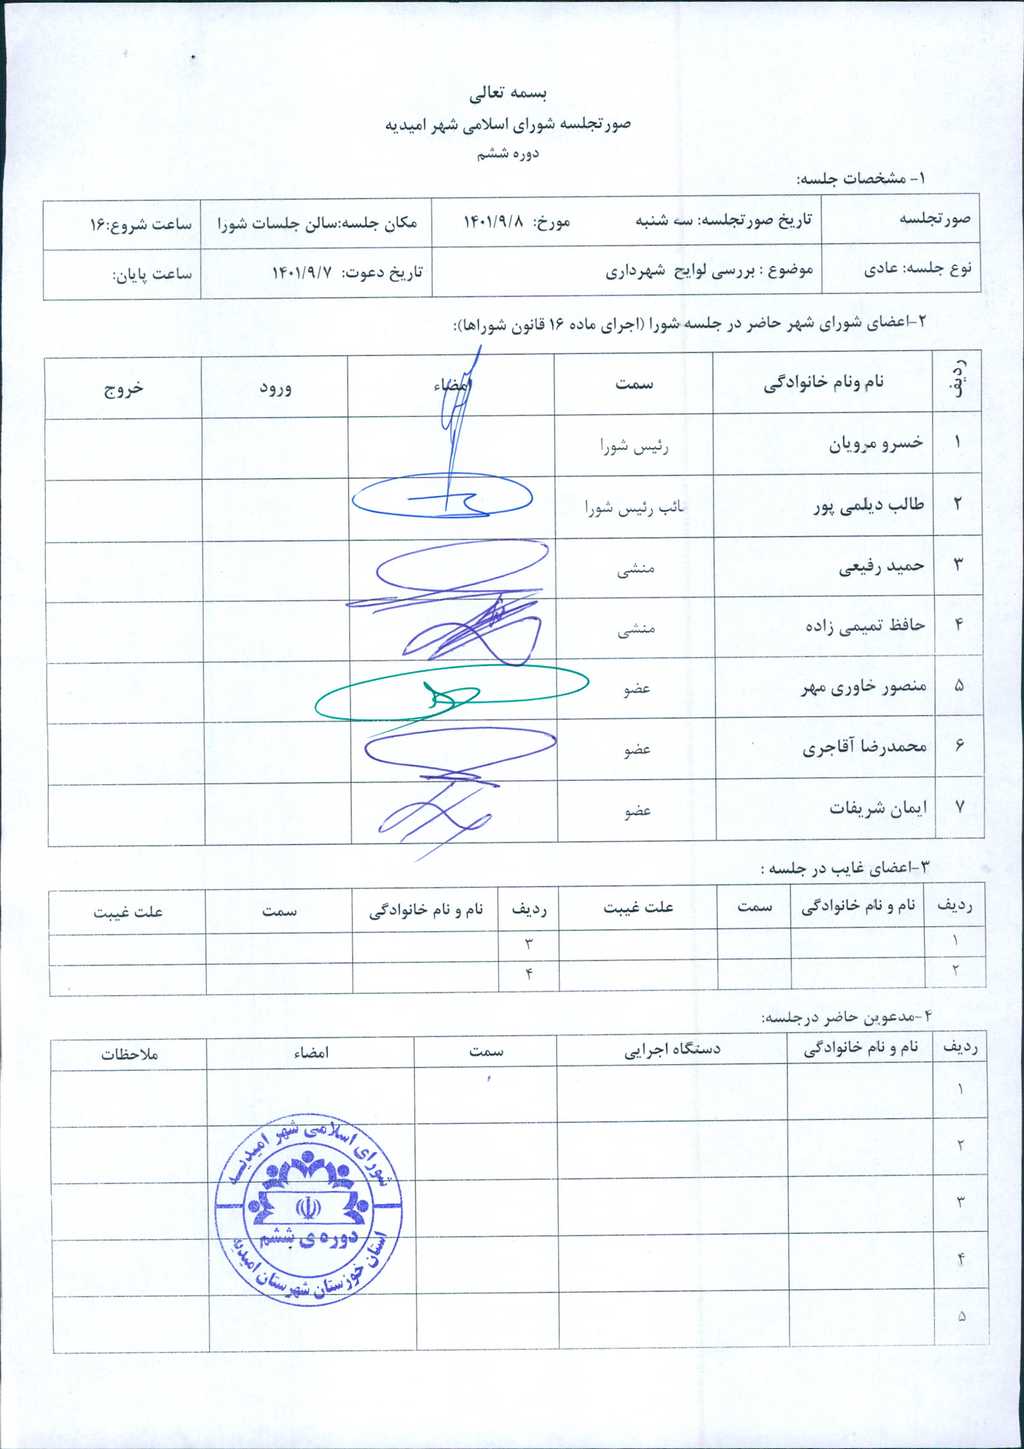 بسمه تعالی
صورتجلسه شورای اسلامی شهر امیدیه
دوره ششم
۱- مشخصات جلسه:
صورتجلسه تاریخ صورتجلسه: سه شنبه مورخ: ۱۴۰۱/۹/۸ مکان جلسه:سالن جلسات شورا ساعت شروع:۱۶
نوع جلسه: عادی موضوع : بررسی لوایح شهرداری تاریخ دعوت: ۱۴۰۱/۹/۷ ساعت پایان:
۲-اعضای شورای شهر حاضر در جلسه شورا (اجرای ماده ۱۶ قانون شوراها):
ردیف نام ونام خانوادگی سمت امضاء ورود خروج
۱ خسرو مرویان رئیس شورا
۲ طالب دیلمی پور ائب رئیس شورا
۳ حمید رفیعی منشی
۴ حافظ تمیمی زاده منشی
۵ منصور خاوری مهر عضو
۶ محمدرضا آقاجری عضو
۷ ایمان شریفات عضو
۳-اعضای غایب در جلسه :
ردیف نام و نام خانوادگی سمت علت غیبت ردیف نام و نام خانوادگی سمت علت غیبت
۱ ۳
۲ ۴
۴-مدعوین حاضر درجلسه:
ردیف نام و نام خانوادگی دستگاه اجرایی سمت امضاء ملاحظات
۱
۲
۳
۴
۵
شورای اسلامی شهر امیدیه
دوره ی ششم
استان خوزستان شهرستان امیدیه